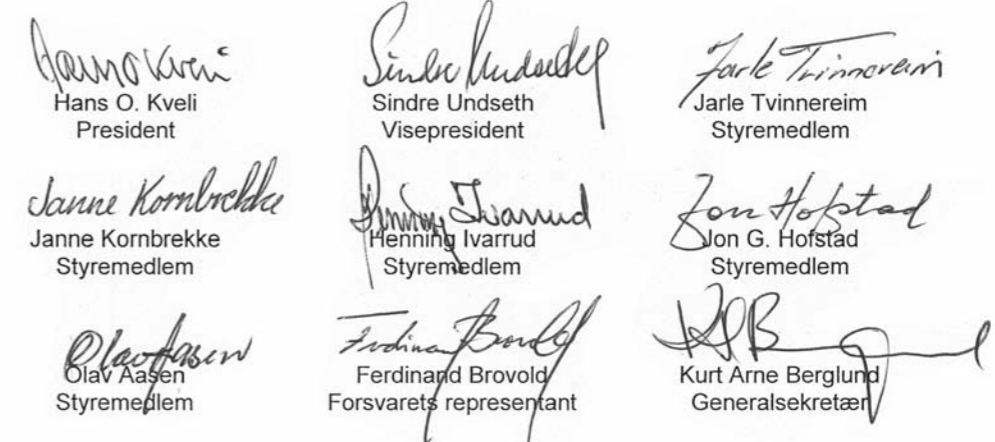 Hans O Kveli
Hans O. Kveli
President
Sindre Undseth
Sindre Undseth
Visepresident
Jarle Tvinnereim
Jarle Tvinnereim
Styremedlem
Janne Kornbrekke
Janne Kornbrekke
Styremedlem
Henning Ivarrud
Henning Ivarrud
Styremedlem
Jon Hofstad
Jon G. Hofstad
Styremedlem
Olav Aasen
Olav Aasen
Styremedlem
Ferdinand Brovold
Ferdinand Brovold
Forsvarets representant
Kurt Arne Berglund
Generalsekretær